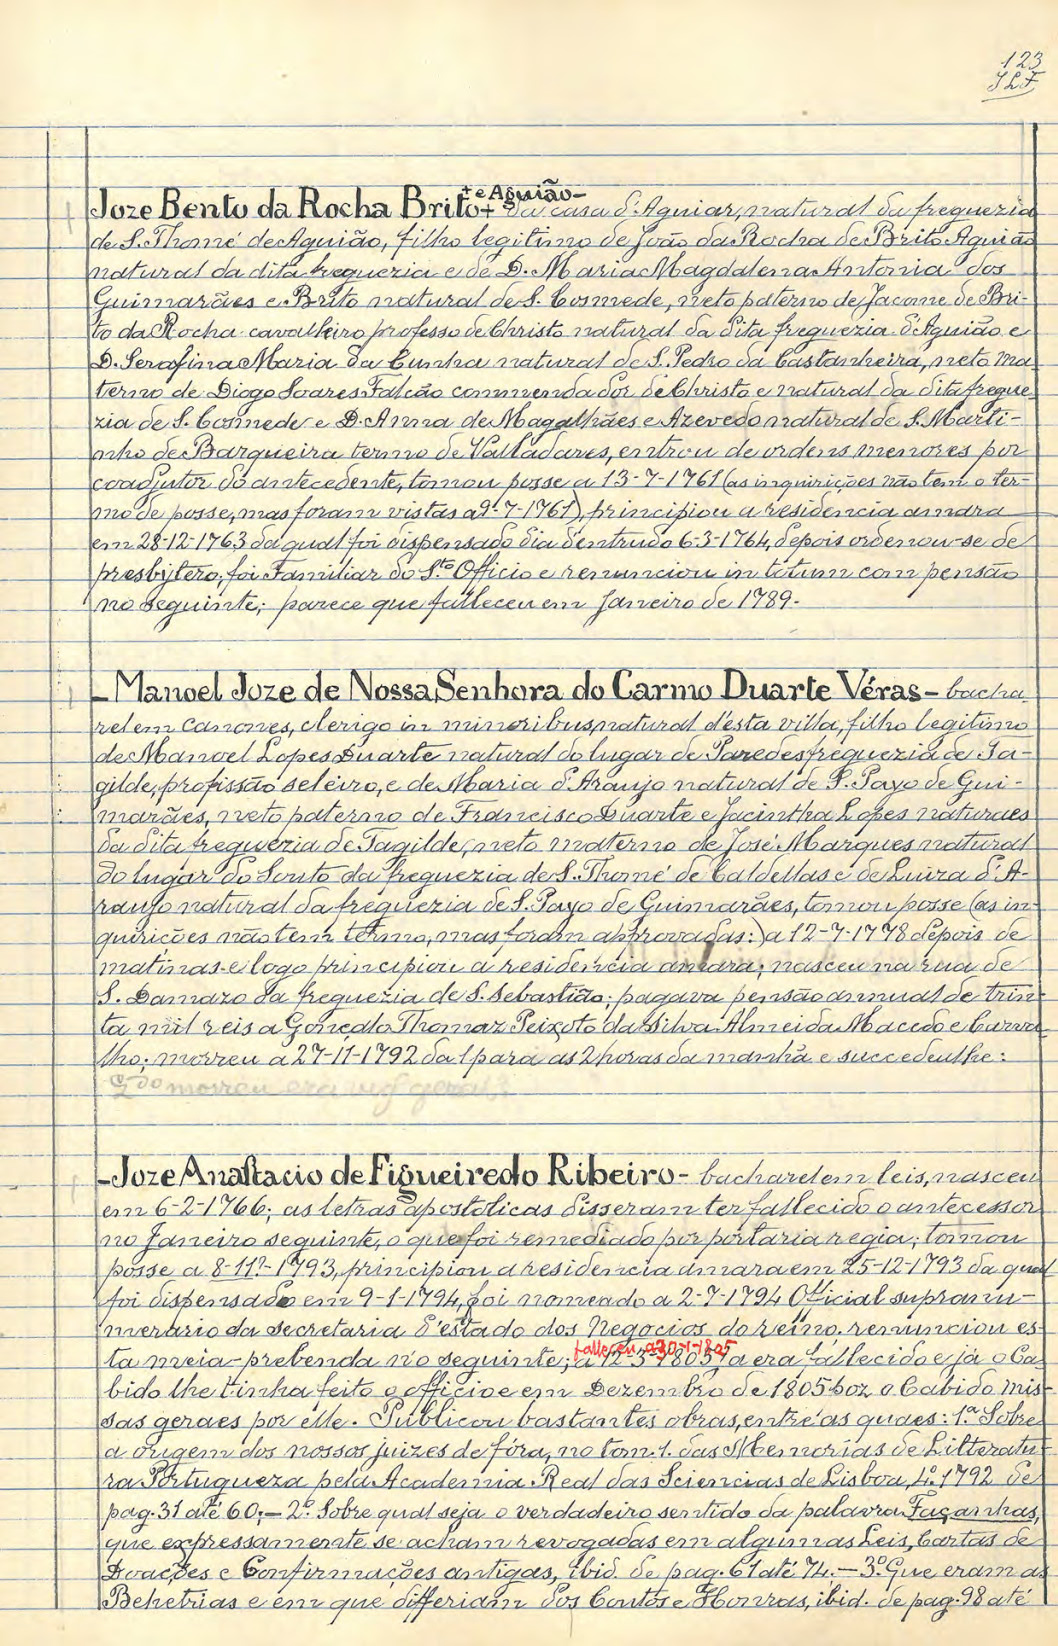 123
JLF
+ e Aguião-
Joze Bento da Rocha Brito + da casa d'Aguiar, natural da freguezia
de S. Thomé de Aguião, filho legitimo de João da Rocha de Brito Aguião
natural da dita freguezia e de D. Maria Magdalena Antonia dos
Guimarães e Brito natural de S. Cosmede, neto paterno de Jacome de Bri-
to da Rocha cavalleiro professo de Christo natural da dita freguezia d'Aguião e
D. Serafina Maria da Cunha natural de S. Pedro da Castanheira, neto ma
terno de Diogo Soares Falcão commendador de Christo e natural da dita fregue
zia de S. Cosmede e D. Anna de Magalhães e Azevedo natural de S. Marti-
nho de Barqueira termo de Valladares, entrou de ordens menores por
coadjutor do antecedente, tomou posse a 13-7-1761 (as inquirições não tem o ter-
mo de posse, mas foram vistas a 9-7-1761), principiou a residencia amara
em 28-12-1763 da qual foi dispensado dia d'entrudo 6-3-1764, depois ordenou-se de
presbytero, foi Familiar do S.to Officio e renunciou in totum com pensão
no seguinte; parece que falleceu em Janeiro de 1789.-
- Manoel Joze de Nossa Senhora do Carmo Duarte Véras - bacha
rel em canones, clerigo in minoribus, natural d'esta villa, filho legitimo
de Manoel Lopes Duarte natural do lugar de Paredes freguezia de Ta-
gilde, profissão seleiro, e de Maria d'Araujo natural de S. Payo de Gui-
marães, neto paterno de Francisco Duarte e Jacintha Lopes naturaes
da dita freguezia de Tagilde, neto materno de José Marques natural
do lugar do Souto da freguezia de S. Thomé de Caldellas e de Luiza d'A-
raujo natural da freguezia de S. Payo de Guimarães, tomou posse (as in-
quirições não tem termo, mas foram approvadas:) a 12-7-1778 depois de
matinas e logo principiou a residencia amara; nasceu na rua de
S. Damazo da freguezia de S. Sebastião; pagava pensão annual de trin-
ta mil reis a Gonçalo Thomaz Peixoto da Silva Almeida Macedo e Carva
lho; morreu a 27-11-1792 da 1 para as 2 horas da manhã e succedeulhe:
Q.do morreu era vig.º geral.
- Joze Anastacio de Figueiredo Ribeiro - bacharel em leis, nasceu
em 6-2-1766; as letras apostolicas disseram ter fallecido o antecessor
no Janeiro seguinte, o que foi remediado por portaria regia; tomou
posse a 8-11.º-1793, principiou a residencia amara em 25-12-1793 da qual
foi dispensado em 9-1-1794, foi nomeado a 2-7-1794 Official supranu-
merario da secretaria d'estado dos Negocios do reino, renunciou es-
falleceu a 30-1-1805
ta meia-prebenda no seguinte; a 12-3-1805 ja era fallecido e já o Ca-
bido lhe tinha feito o officio e em Dezembro de 1805 poz o Cabido mis-
sas geraes por elle. Publicou bastantes obras, entre as quaes: 1.ª Sobre
a origem dos nossos juizes de fóra, no tom. 1. das Memorias de Litteratu-
ra Portugueza pela Academia Real das Sciencias de Lisboa, 4.º 1792 de
pag. 31 até 60; - 2.º Sobre qual seja o verdadeiro sentido da palavra Façanhas,
que expressamente se acham revogadas em algumas Leis, Cartas de
Doações e Confirmações antigas, ibid. de pag. 61 até 74. - 3.º Que eram as
Behetrias e em que differiam dos Contos e Honras, ibid. de pag. 98 até